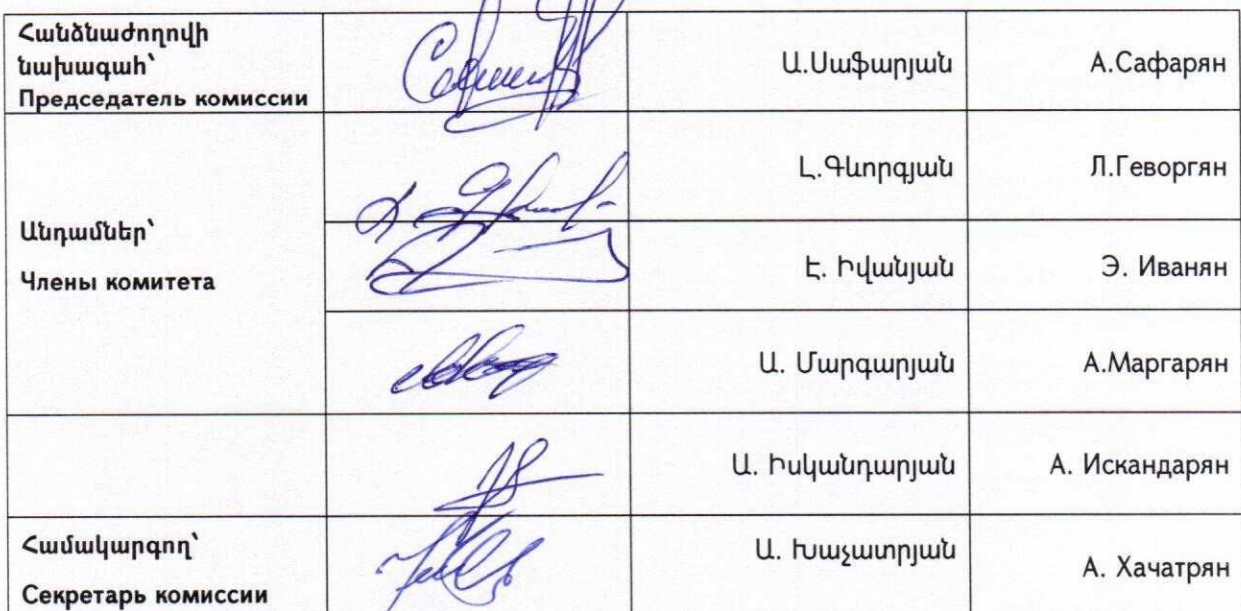 Հանձնաժողովի
նախագահ՝
Председатель комиссии
Ա.Սաֆարյան
А.Сафарян
Լ.Գևորգյան
Л.Геворгян
Անդամներ՝
Члены комитета
Է. Իվանյան
Э. Иванян
Ա. Մարգարյան
А.Маргарян
Ա. Իսկանդարյան
А. Искандарян
Համակարգող՝
Секретарь комиссии
Ա. Խաչատրյան
А. Хачатрян